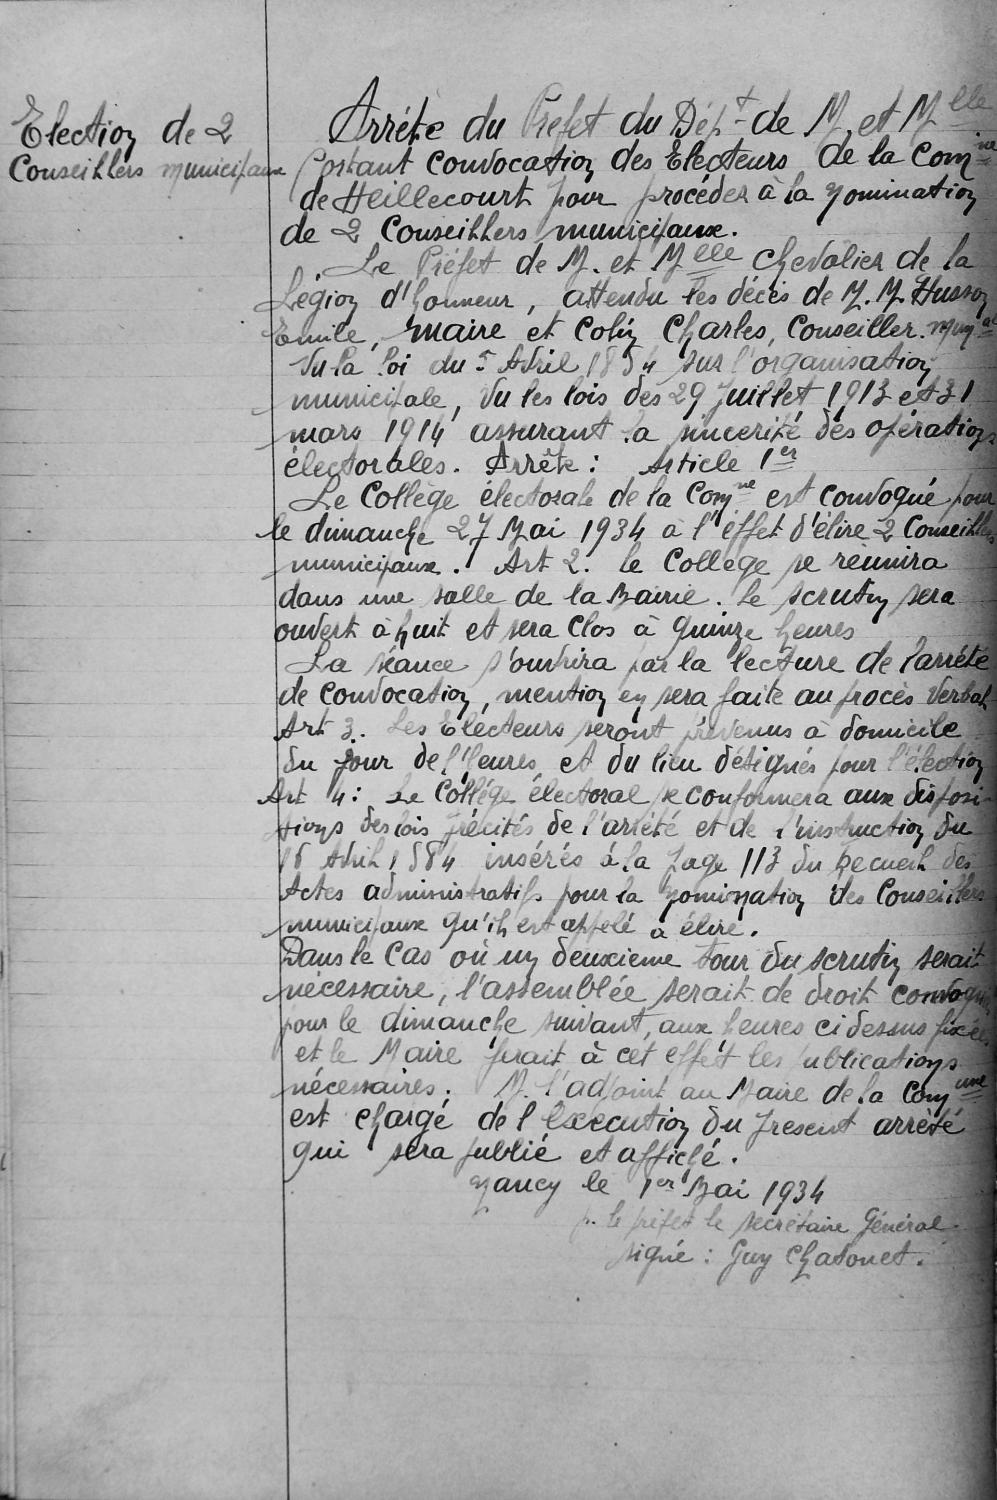 Election de 2
Conseillers municipaux
Arrêté du Préfet du Dépt de M. et Mlle
Portant convocation des Electeurs de la Comne
de Heillecourt pour procéder à la nomination
de 2 Conseillers municipaux.
Le Préfet de M. et Mlle chevalier de la
Légion d'honneur, attendu les décès de M. M. Husson
Emile, maire et Colin Charles, Conseiller. Munal
Vu la loi du 5 Avril 1854 sur l'organisation
municipale, Vu les lois des 29 Juillet 1913 et 31
mars 1914 assurant la sincerité des opérations
électorales. Arrête : Article 1er
Le Collège électorale de la Comne est convoqué pour
le dimanche 27 Mai 1934 à l'éffet d'élire 2 Conseillers
municipaux. Art 2. le Collège se réunira
dans une salle de la Mairie. Le scrutin sera
ouvert à huit et sera clos à quinze heures
La séance s'ouvrira par la lecture de l'arrêté
de convocation, mention en sera faite au procès verbal
Art 3. Les Electeurs seront prévenus à domicile
du jour de l'heures et du lieu désignés pour l'élection
Art 4 : Le Collège électoral se conformera aux disposi-
tions des lois précités de l'arrêté et de l'instruction du
Avril 1884 insérés à la page 113 du Recueil des
Actes administratifs pour la nomination des Conseillers
municipaux qu'il est appelé à élire.
Dans le cas où un deuxieme tour du scrutin serait
nécessaire, l'assemblée serait de droit convoquée
pour le dimanche suivant, aux heures ci dessus fixées
et le Maire ferait à cet effet les publications
nécessaires. M. l'adjoint au Maire de la Comune
est chargé de l'éxecution du présent arrêté
qui sera publié et affiché.
Nancy le 1er Mai 1934
p. le préfet le secrétaire Général.
signé : Guy Chatonet.